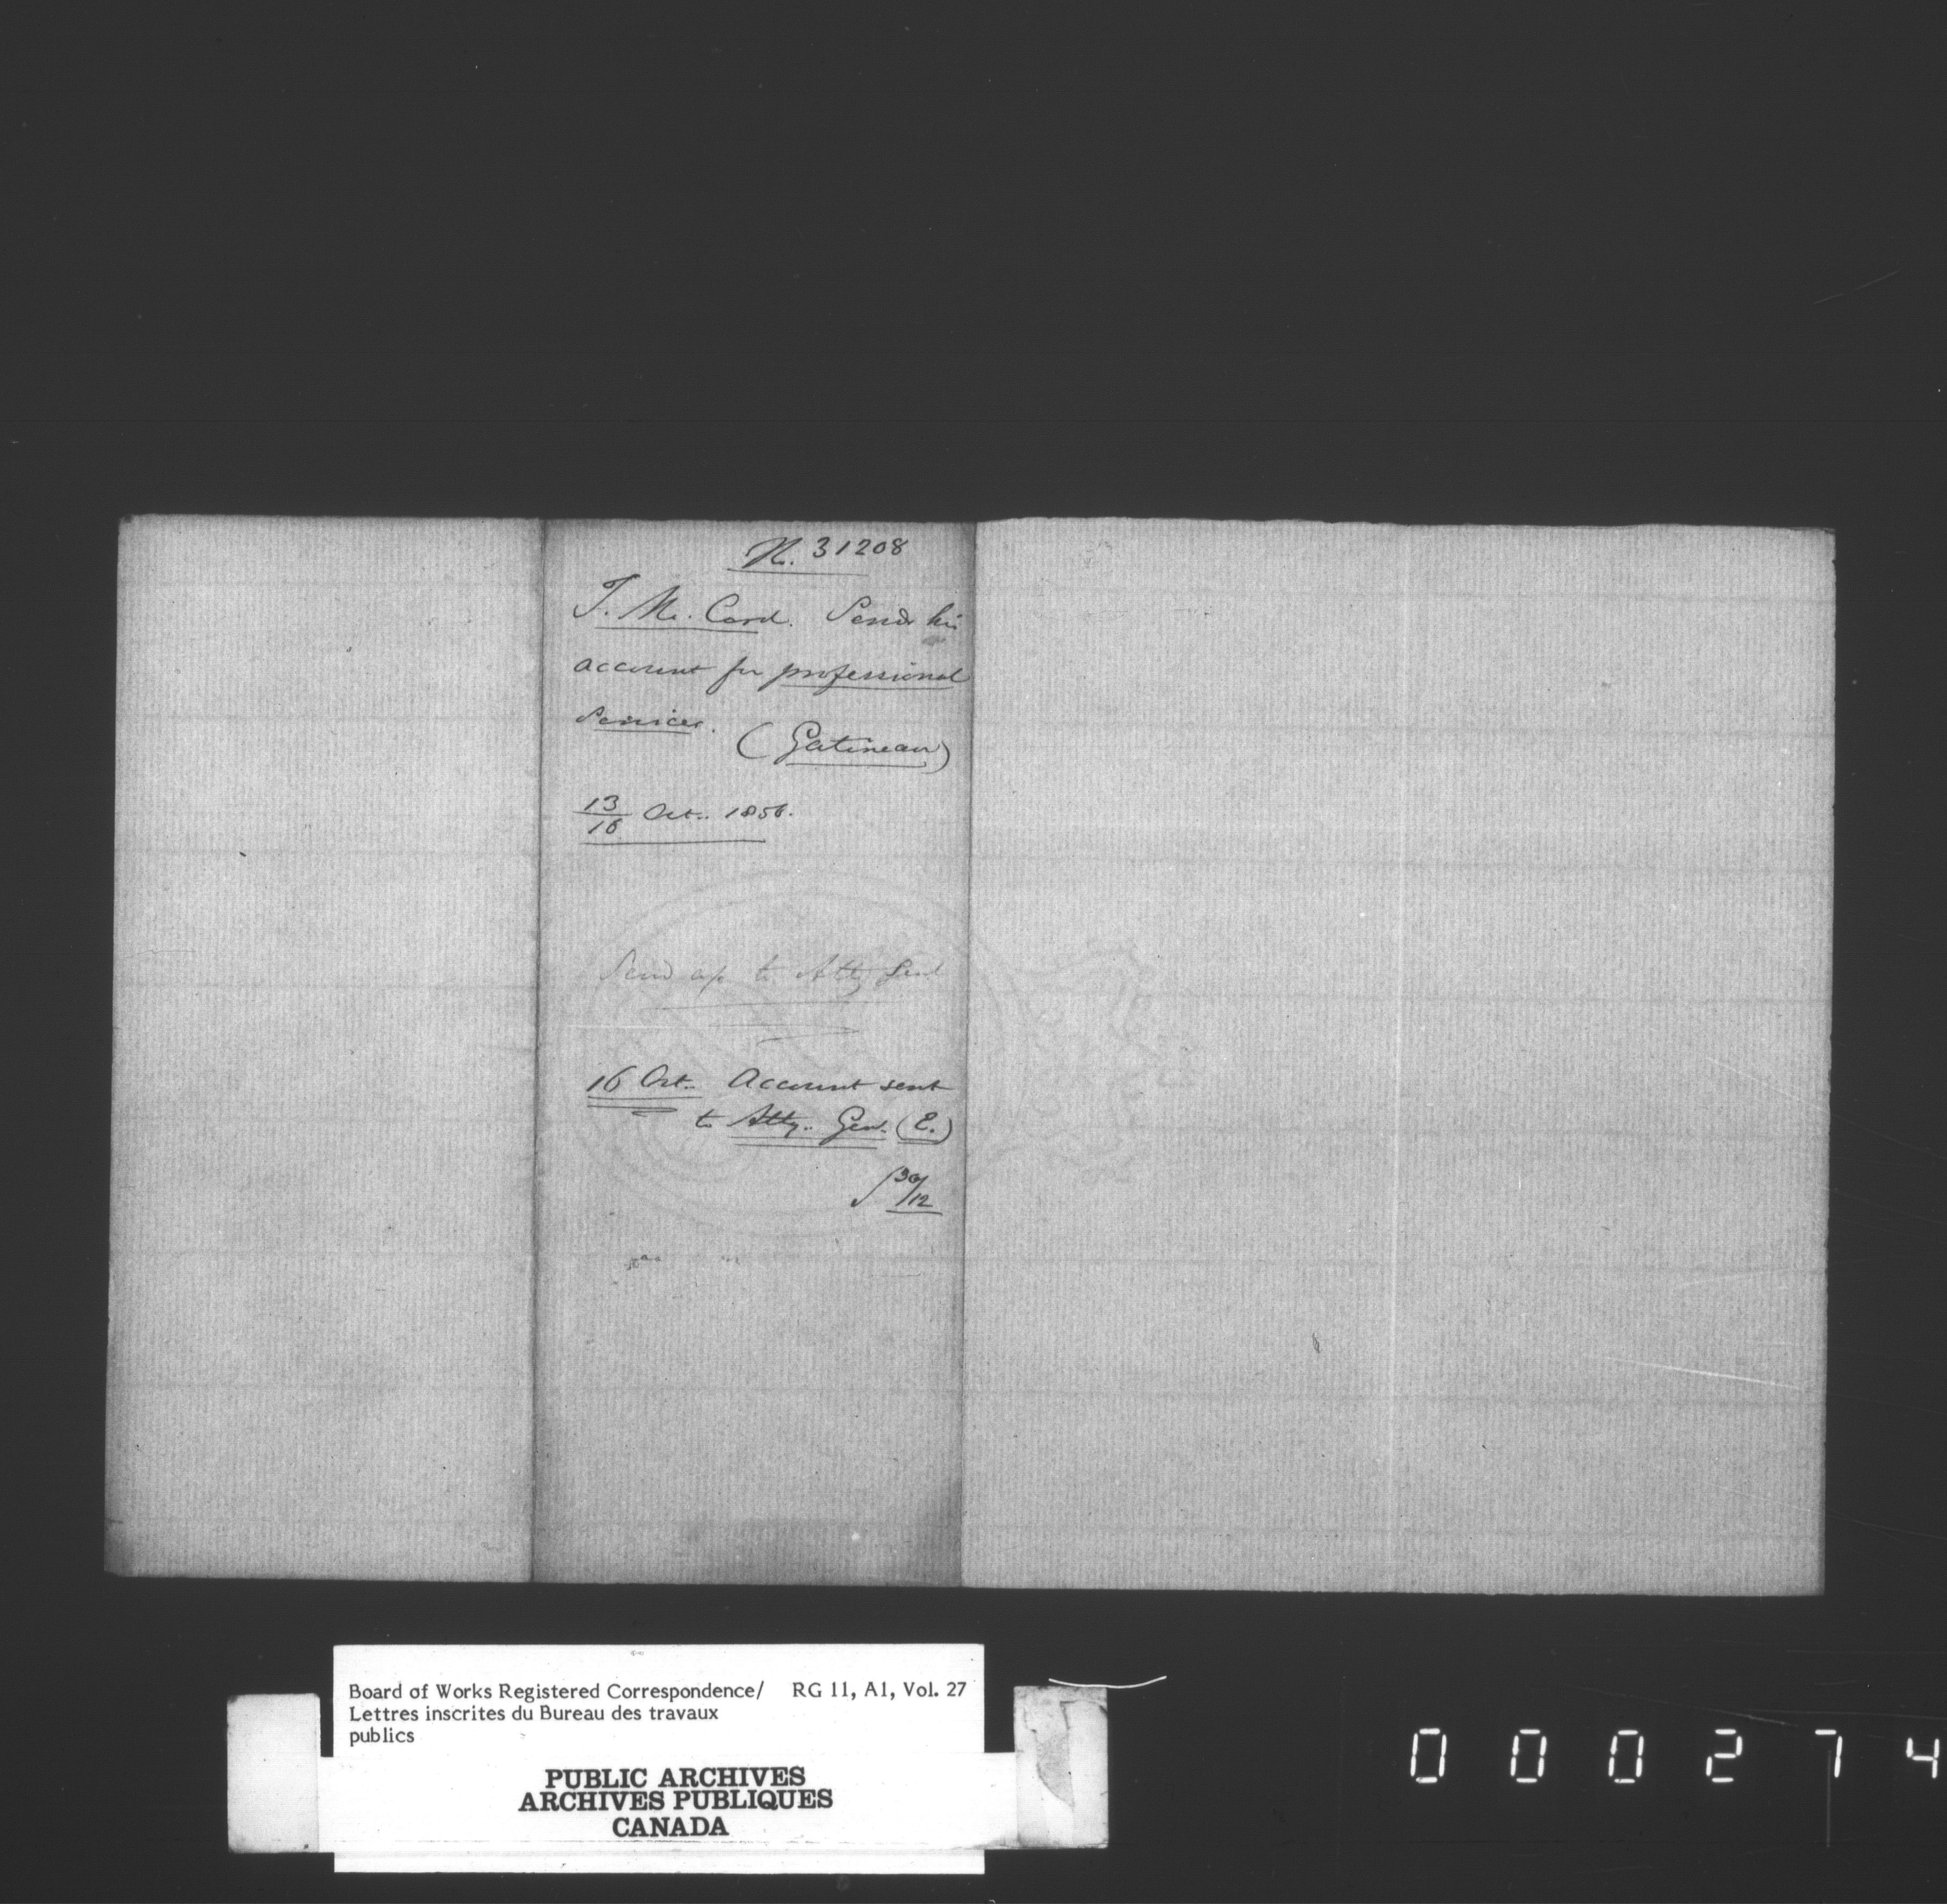 No. 31208
T. Mc. Cord. Sends his
account for professional
services.
(Gatineau)
13/16 Oct. 1856.
Send a/c to Atty Genl
16 Oct. Account sent
to Atty. Gen. (E.)
30/12
Board of Works Registered Correspondence/ RG 11, A1, Vol. 27
Lettres inscrites du Bureau des travaux
publics
PUBLIC ARCHIVES
ARCHIVES PUBLIQUES
CANADA
000274